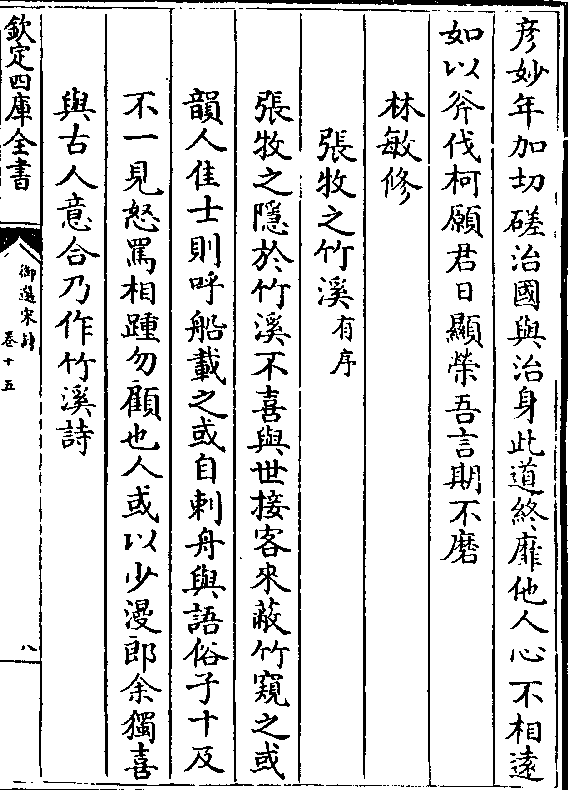 彦妙年加切磋治國與治身此道終靡他人心不相遠
如以斧伐柯願君日顯榮吾言期不磨
林敏修
張牧之竹溪有序
張牧之隱於竹溪不喜與世接客來蔽竹窺之或
韻人佳士則呼船載之或自刺舟與語俗子十及
不一見怒罵相踵勿顧也人或以少漫郎余獨喜
與古人意合乃作竹溪詩
欽定四庫全書
御選宋詩
卷十五
八